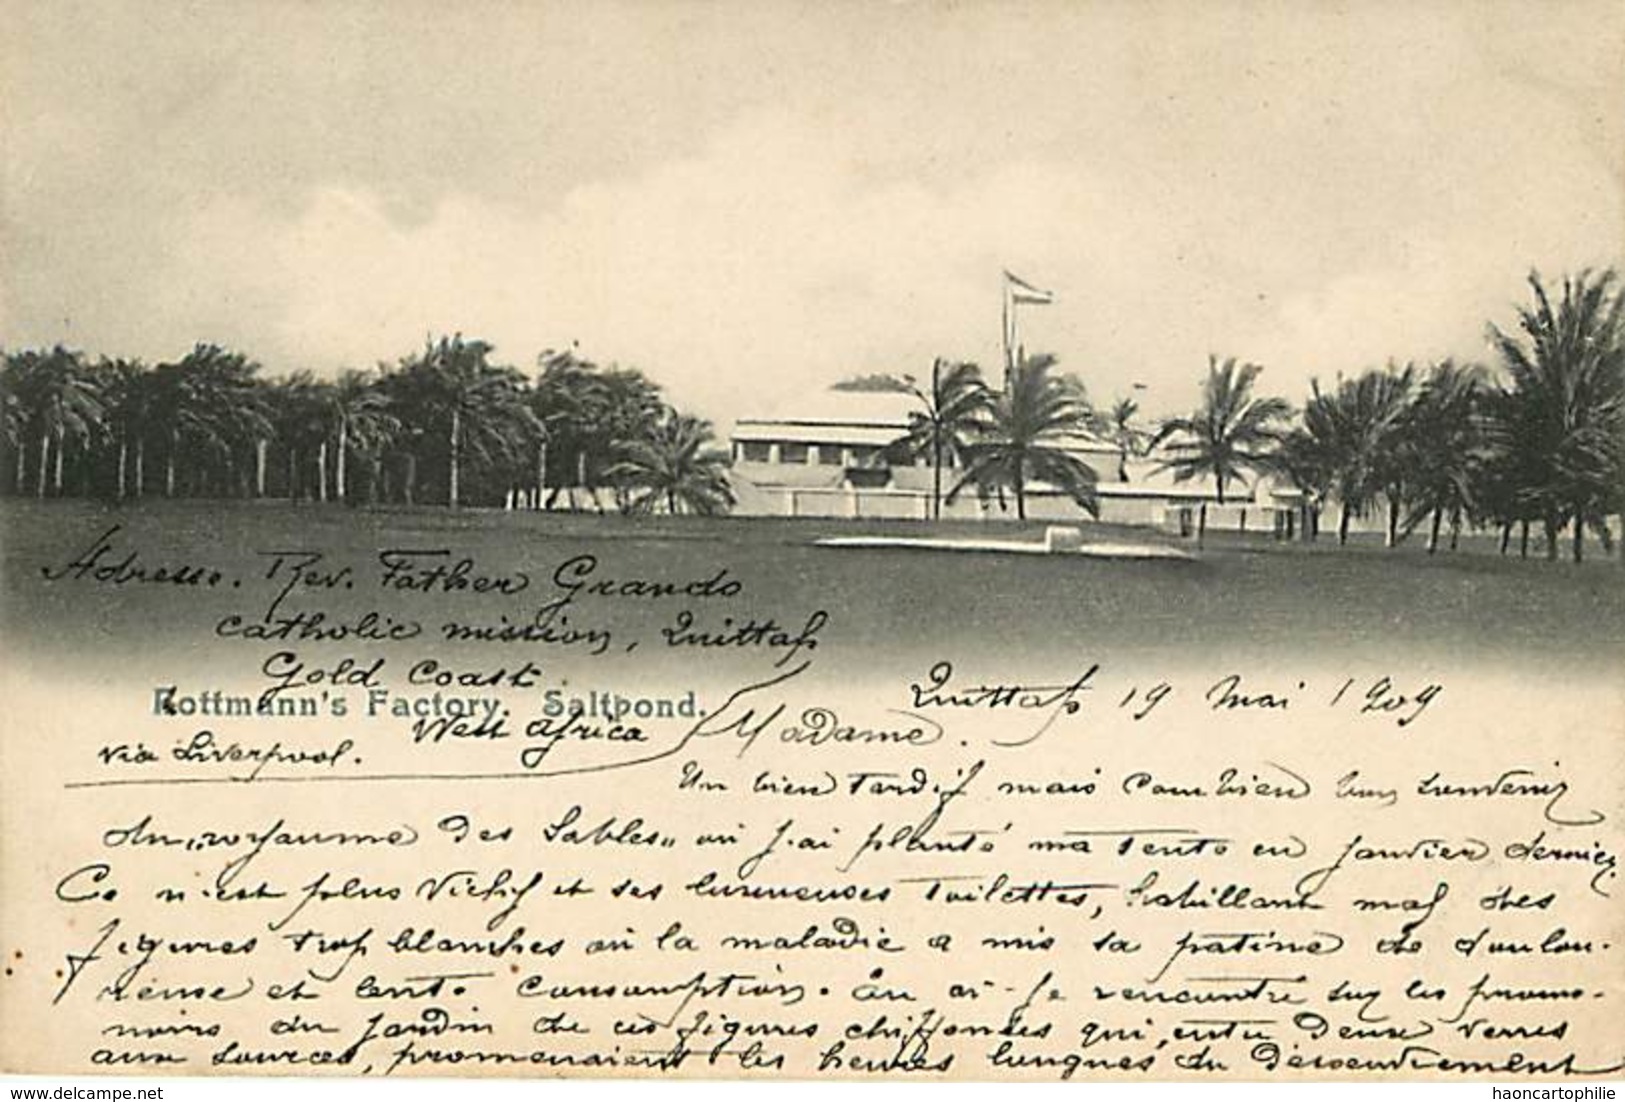 Adresse. Rev. Father Grando
Catholic mission, Quittah
Gold Coast.
Rottmann's Factory. Saltpond.
West Africa
via Liverpool.
Quittah 19 Mai 1909
Madame.
Un bien tardif mais combien bon souvenir
du „royaume des Sables„ où j'ai planté ma tente en janvier dernier.
Ce n'est plus Vichy et ses luxueuses toilettes, habillant mal des
figures trop blanches où la maladie a mis sa patine de doulou-
reuse et lente consomption. En ai-je rencontré sur les prome-
noirs du jardin de ces figures chiffonées qui, entre deux verres
aux sources, promenaient les heures longues du désoeuvrement
haoncartophilie